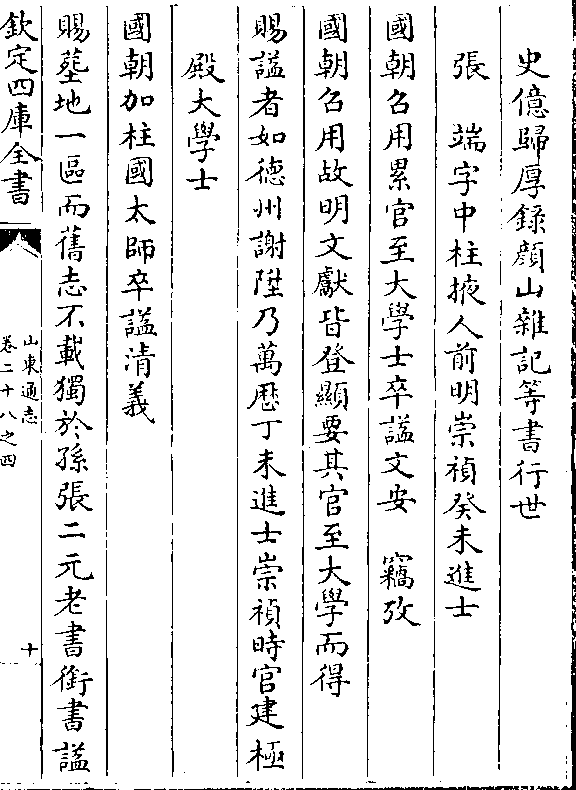 史億歸厚録顔山雜記等書行世
張　端字中柱掖人前明崇禎癸未進士
國朝召用累官至大學士卒諡文安　竊攷
國朝召用故明文獻皆登顯要其官至大學而得
賜諡者如德州謝陞乃萬厯丁未進士崇禎時官建極
殿大學士
國朝加柱國太師卒諡清義
賜塋地一區而舊志不載獨於孫張二元老書銜書諡
欽定四庫全書
山東通志
卷二十八之四
十